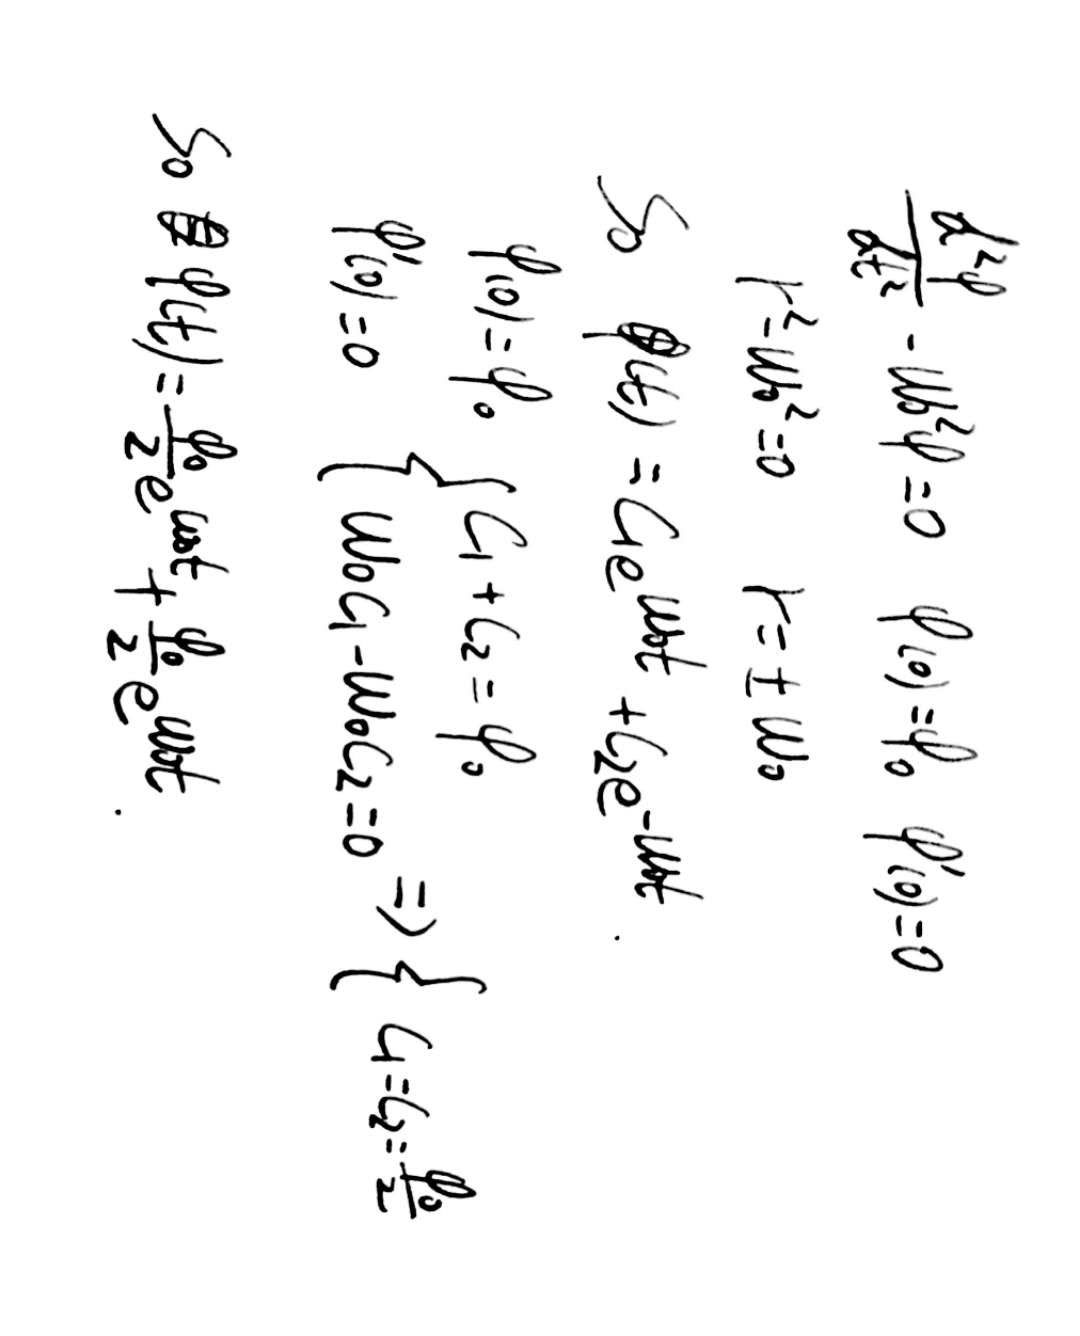 d²φ/dt² - ω₀²φ = 0   φ(0) = φ₀   φ'(0) = 0
r² - ω₀² = 0   r = ± ω₀
So φ(t) = C₁e^{ω₀t} + C₂e^{-ω₀t}.
φ(0) = φ₀ { C₁ + C₂ = φ₀
φ'(0) = 0 { ω₀C₁ - ω₀C₂ = 0 => { C₁ = C₂ = φ₀/2
So φ(t) = φ₀/2 e^{ω₀t} + φ₀/2 e^{ω₀t}.